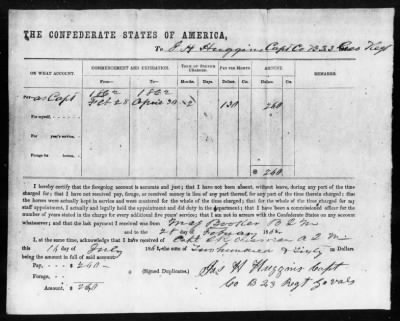 THE CONFEDERATE STATES OF AMERICA,
To J. H. Huggins Capt Co B 23 Regt
ON WHAT ACCOUNT. COMMENCEMENT AND EXPIRATION. TERM OF SERVICE CHARGED. PAY PER MONTH. AMOUNT. REMARKS.
From— To— Months. Days. Dollars. Cts. Dollars. Cts.
1862 1862
Pay as Capt Feb 28 April 30 2 130 260
For myself,
For year's service,
Forage for horses,
$ 260
I hereby certify that the foregoing account is accurate and just; that I have not been absent, without leave, during any part of the time
charged for; that I have not received pay, forage, or received money in lieu of any part thereof, for any part of the time therein charged; that
the horses were actually kept in service and were mustered for the whole of the time charged; that for the whole of the time charged for my
staff appointment, I actually and legally held the appointment and did duty in the department; that I have been a commissioned officer for the
number of years stated in the charge for every additional five years' service; that I am not in arrears with the Confederate States on any account
whatsoever; and that the last payment I received was from Maj
and to the 28 day of 186
I, at the same time, acknowledge that I have received of Capt
this day of July 1862, the sum of Two hundred & Sixty Dollars
being the amount in full of said account.
Pay, $ 260
Forage,
Amount $ 260
(Signed Duplicates.)
Jas H Huggins Capt
Co B 23 Regt Ga Vols